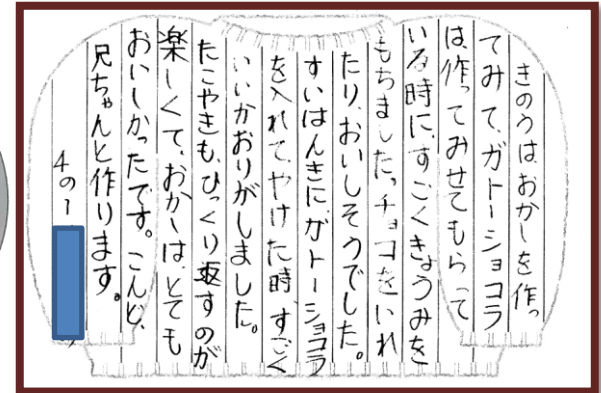 きのうは、おかしを作っ
てみて、ガトーショコラ
は、作ってみせてもらって
いる時に、すごくきょうみを
もちました。チョコをいれ
たり、おいしそうでした。
すいはんきに、ガトーショコラ
を入れて、やけた時、すごく
いいかおりがしました。
たこやきも、ひっくり返すのが
楽しくて、おかしは、とても
おいしかったです。こんど、
兄ちゃんと作ります。
4の1